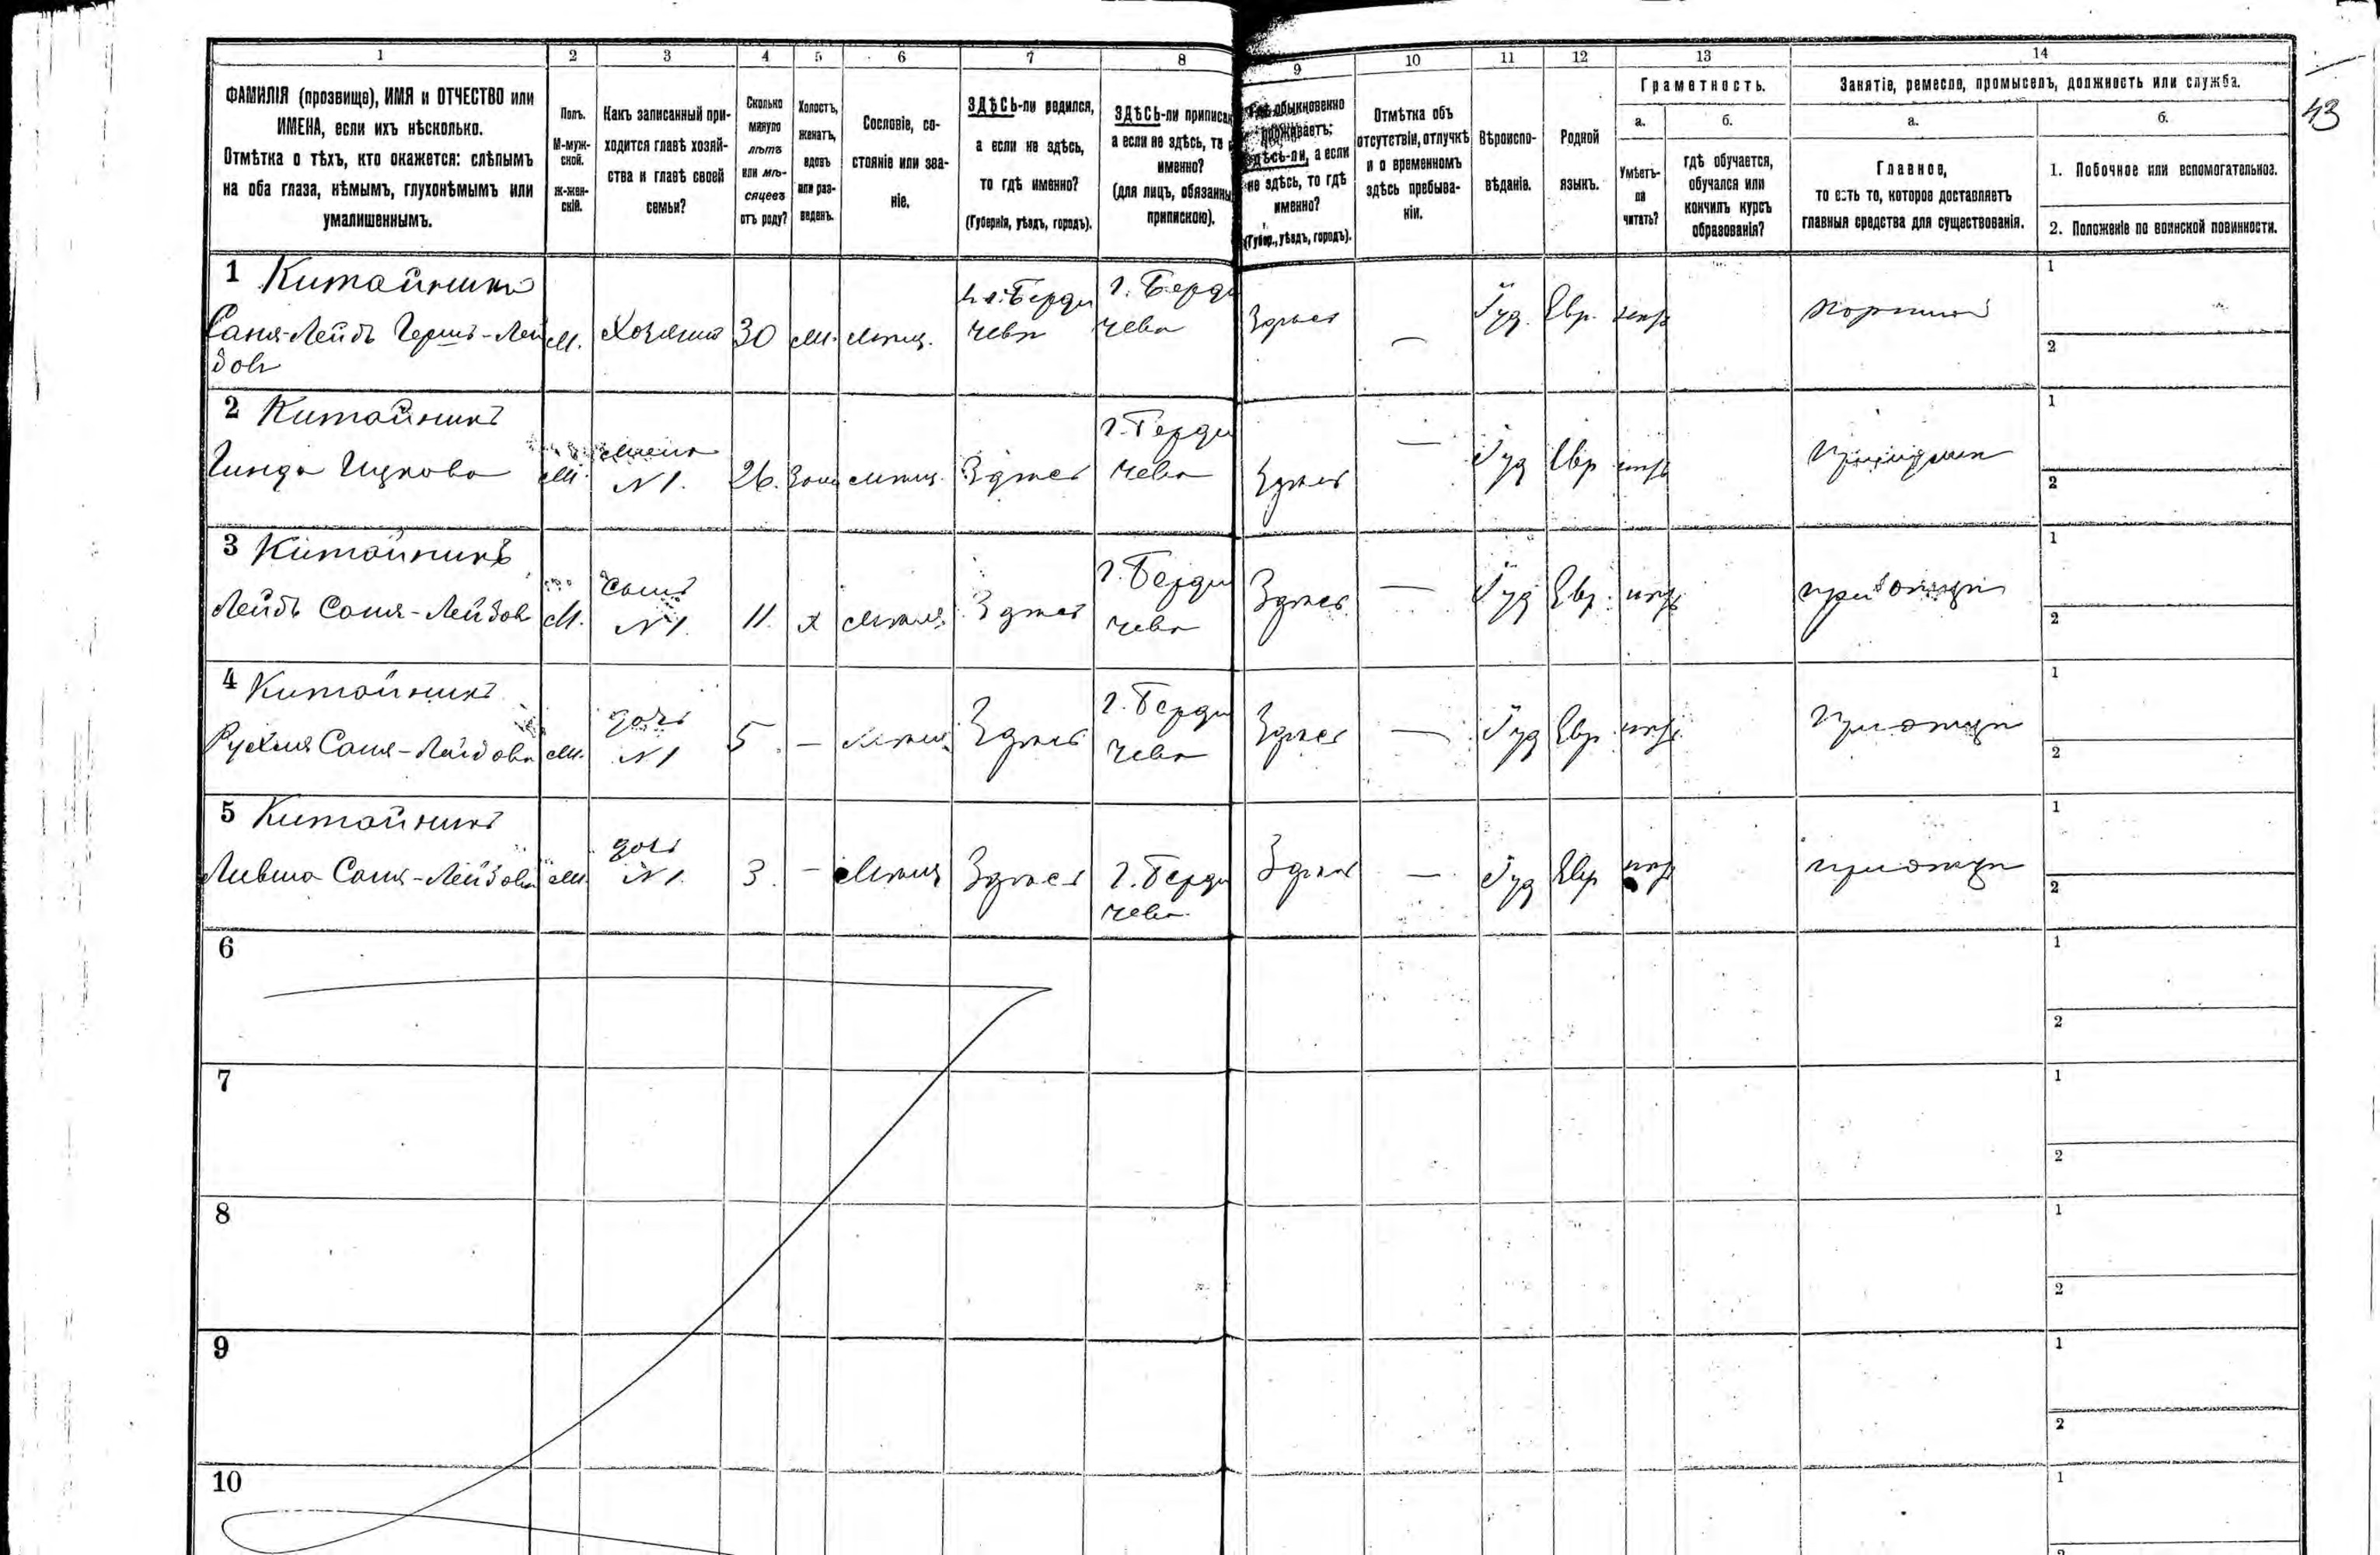 1 2 3 4 5 6 7 8 9 10 11 12 13 14
ФАМИЛІЯ (прозвище), ИМЯ и ОТЧЕСТВО или
ИМЕНА, если ихъ нѣсколько.
Отмѣтка о тѣхъ, кто окажется: слѣпымъ
на оба глаза, нѣмымъ, глухонѣмымъ или
умалишеннымъ.
Полъ.
М-муж-
ской.
Ж-жен-
скій.
Какъ записанный при-
ходится главѣ хозяй-
ства и главѣ своей
семьи?
Сколько
минуло
лѣтъ
или мѣ-
сяцевъ
отъ роду?
Холостъ,
женатъ,
вдовъ
или раз-
веденъ.
Сословіе, со-
стояніе или зва-
ніе.
ЗДѢСЬ-ли родился,
а если не здѣсь,
то гдѣ именно?
(Губернія, уѣздъ, городъ).
ЗДѢСЬ-ли приписан
а если не здѣсь, то
именно?
(для лицъ, обязанны
припискою).
обыкновенно
проживаетъ:
здѣсь-ли, а если
не здѣсь, то гдѣ
именно?
(Губер., уѣздъ, городъ).
Отмѣтка объ
отсутствіи, отлучкѣ
и о временномъ
здѣсь пребыва-
ніи.
Вѣроиспо-
вѣданіе.
Родной
языкъ.
Грамотность.
а.
Умѣетъ-
ли
читать?
б.
гдѣ обучается,
обучался или
кончилъ курсъ
образованія?
Занятіе, ремесло, промыселъ, должность или служба.
а.
Главное,
то есть то, которое доставляетъ
главныя средства для существованія.
б.
1. Побочное или вспомогательное.
2. Положеніе по воинской повинности.
43
1 Китайникъ
Саня-Лейбъ Гершъ-Лей
бовъ
М. Хозяинъ 30 Ж. Мѣщ.
Берди
чевъ
г. Берди
чева
Здѣсь — Іуд. Евр. нѣтъ Портной
1
2
2 Китайникъ
Гинда Ицкова
Жена
№1. 26. Мѣщ. Здѣсь
г. Берди
чева
Здѣсь — Іуд Евр нѣтъ
1
2
3 Китайникъ
Лейбъ Саня-Лейбов
М.
сынъ
№1. 11. Х Мѣщ. Здѣсь
г. Берди
чева
Здѣсь — Іуд Евр. нѣтъ при отцѣ
1
2
4 Китайникъ
Рухля Саня-Лейбова
Ж.
дочь
№1 5 — Мѣщ. Здѣсь
г. Берди
чева
Здѣсь — Іуд Евр. нѣтъ при отцѣ
1
2
5 Китайникъ
Ливша Саня-Лейбова
Ж.
дочь
№1. 3. — Мѣщ Здѣсь
г. Берди
чева
Здѣсь — Іуд Евр нѣтъ при отцѣ
1
2
6
1
2
7
1
2
8
1
2
9
1
2
10
1
2